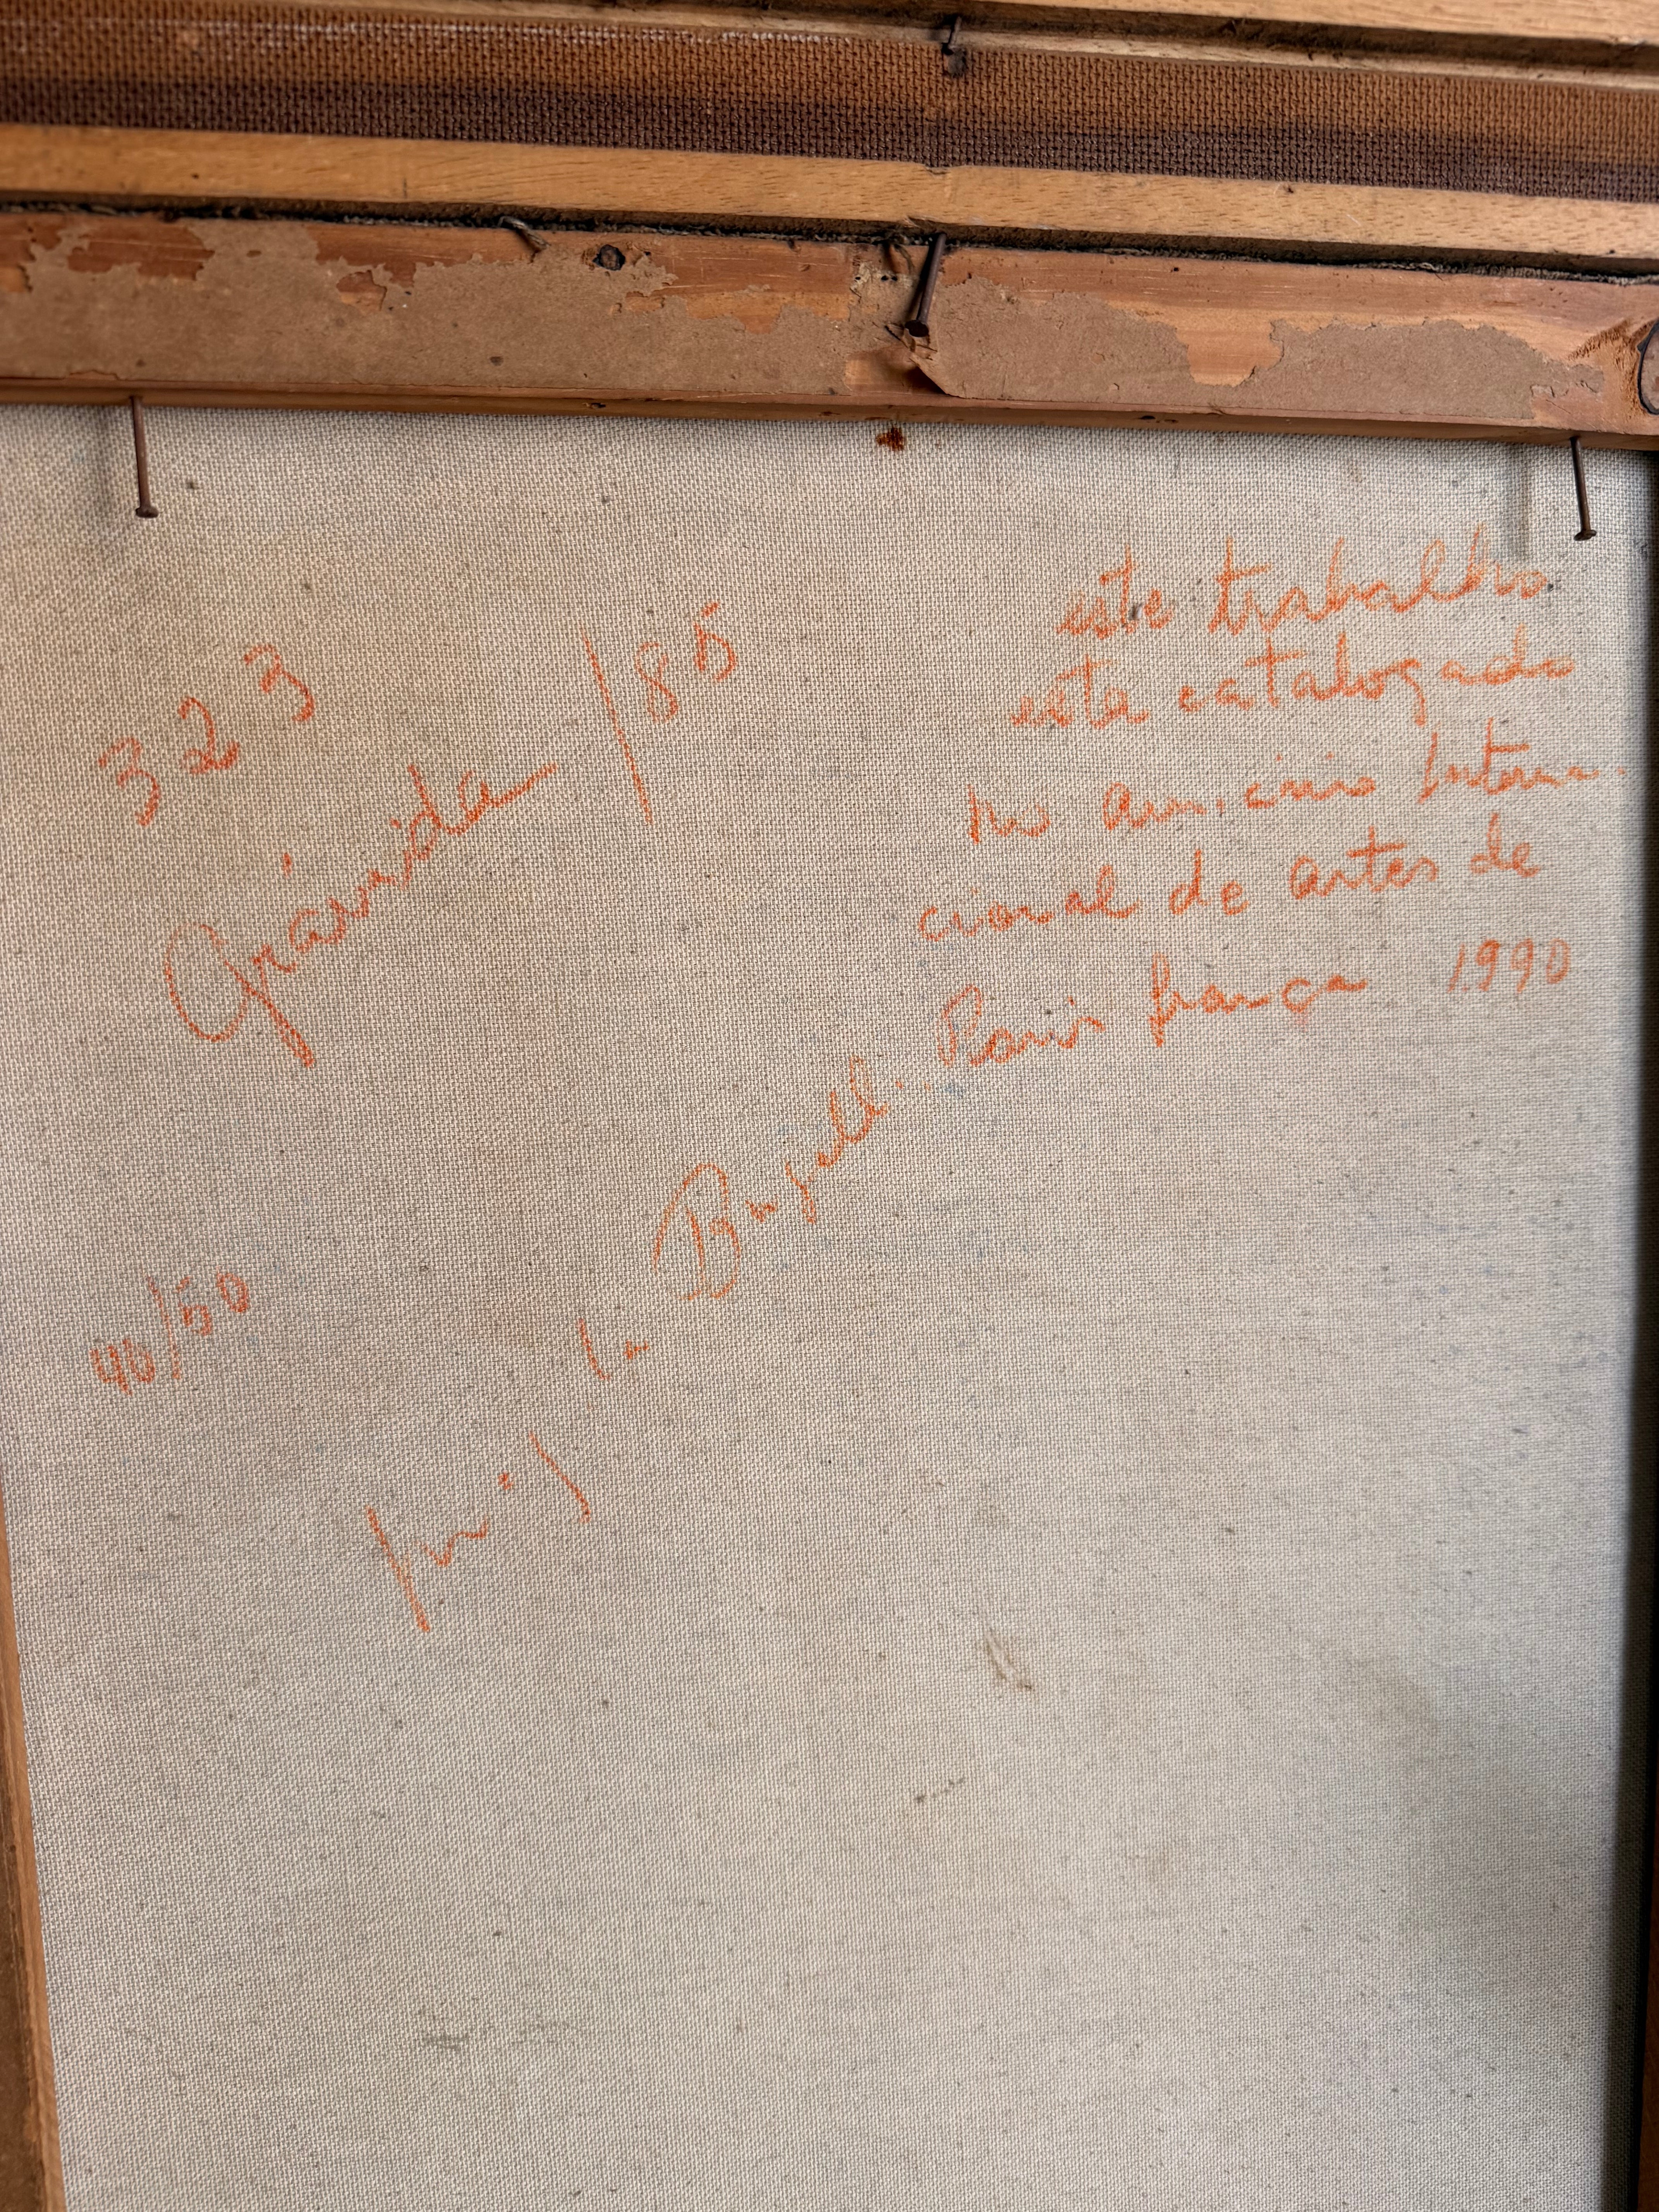 323
Grávida /85
este trabalho
esta catalogado
no Interna-
cional de artes de
Paris frança 1990
40/50